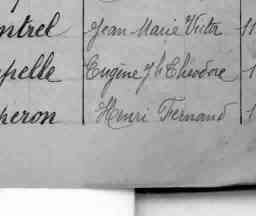 ntrel Jean Marie Victor 11
pelle Eugène Jh Théodore 1
peron Henri Fernand 1